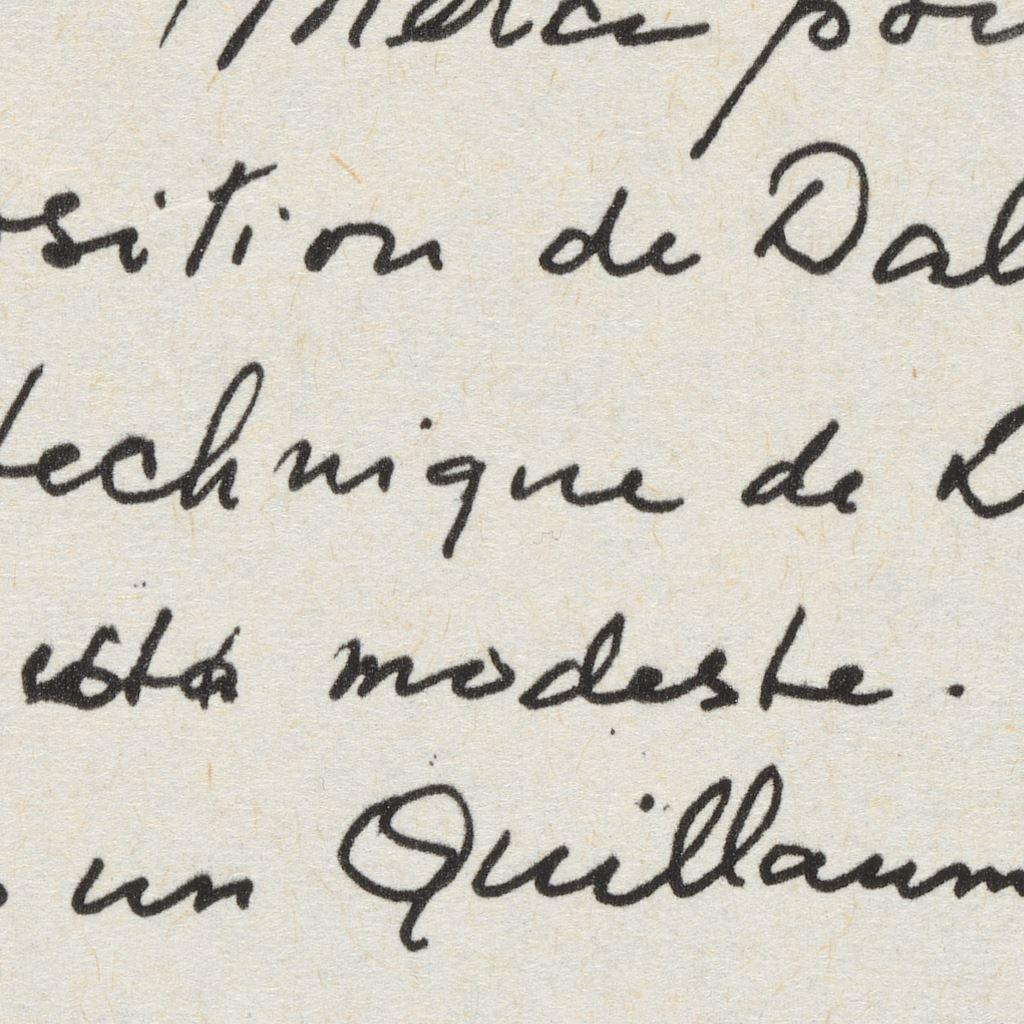 Merci pou
osition de Dal
technique de D
modeste.
un Guillaum